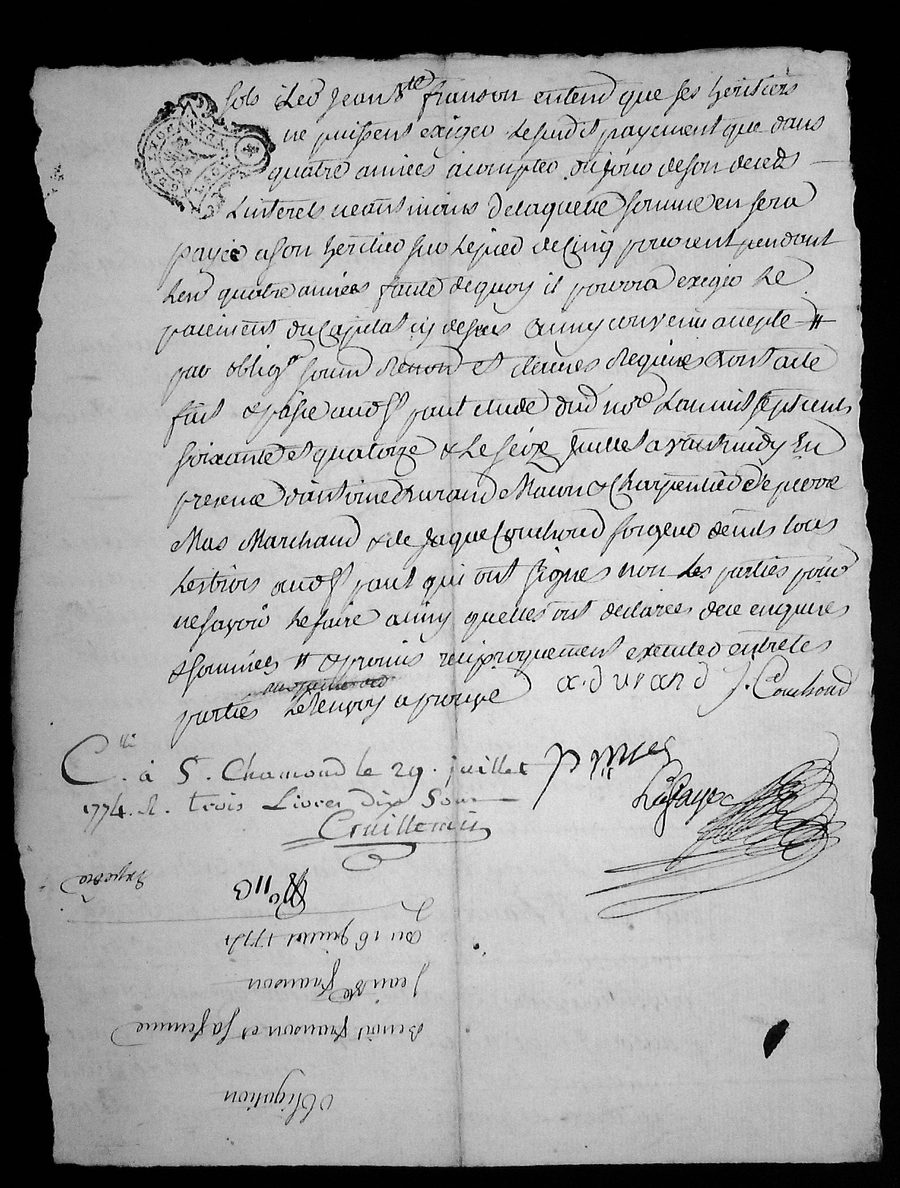 sols Led Jean Bte franson entend que ses heritiers
ne puissent exiger Led payement que dans
quatre années a compter du jour de son deceds
Linterets neantmoins de laquelle somme en sera
payée a son heritier sur le pied de Cinq pour cent pendant
Les quatre années faute de quoy il pourra exiger Le
paiement du Capital cy dessus ainsy convenu accepte #
par oblig. soum renon et clauses Requises dont acte
fait & passé aud paul etude dud nore Lan mil sept cents
soixante et quatorze & Le seize Juillet avant midy En
presence dantoine durand Macon & Charpentier de pierre
Mas Marchand & de Jaque Couchoud forgeur de
Les trois aud paul qui ont signes non Les parties pour
ne savoir Le faire ainsy quelles ont declarées de ce enquises
& sommées # & promis reciproquement executer entre les
parties Le renvoy aprouvé a. durand J. Couchoud
p mas
C. à St. Chamond le 29. juillet
1774. R. trois Livres dix Sous
N° 113
du 16 juillet 1774
Jean Bte franson
Benoit franson et sa femme
Obligation